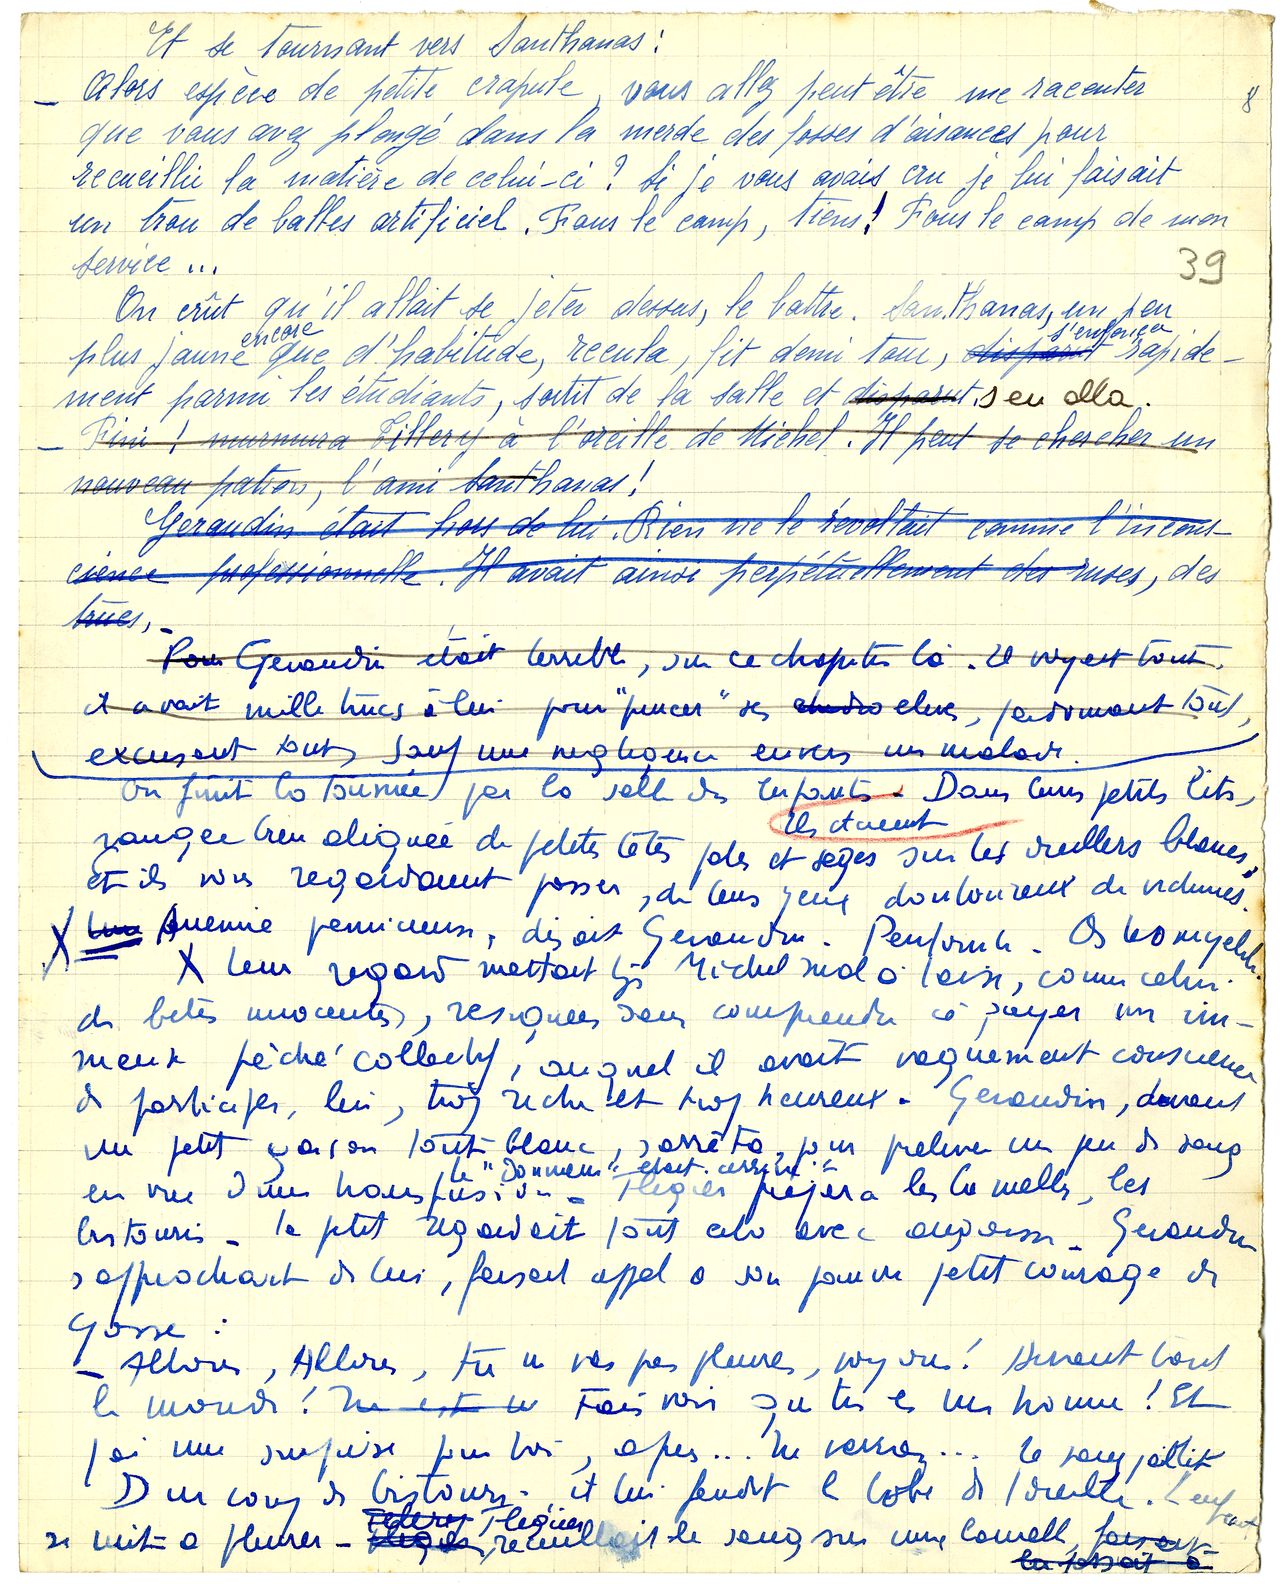 Et se tournant vers Santhanas :
– Alors espèce de petite crapule, vous allez peut être me raconter
8
que vous avez plongé dans la merde des fosses d'aisances pour
recueillir la matière de celui-ci ? Si je vous avais cru je lui faisait
un trou de balles artificiel. Fous le camp, tiens ! Fous le camp de mon
service ...
39
On crût qu'il allait se jeter dessus, le battre. Santhanas, un peu
encore s'enfonça
plus jaune que d'habitude, recula, fit demi tour, disparut rapide-
ment parmi les étudiants, sortit de la salle et disparut. s'en alla.
– Fini ! murmura Tillery à l'oreille de Michel. Il peut se chercher un
nouveau patron, l'ami Santhanas !
Geraudin était hors de lui. Rien ne le révoltait comme l'incons-
cience professionnelle. Il avait ainsi perpétuellement des ruses, des
trucs,
Pour Geraudin était terrible, sur ce chapitre là. Il voyait tout,
il avait mille trucs à lui pour "pincer" ses élèves, pardonnant tout,
excusant tout, sauf une négligence envers un malade.
On finit la tournée par la salle des enfants. Dans leurs petits lits,
Ils étaient
rangée bien alignée de petites têtes pales et sages sur les oreillers blancs,
et ils vous regardaient passer, de leurs yeux douloureux de victimes.
X Anémie pernicieuse, disait Geraudin. Perfonte. Osteomyelite.
X Leur regard mettait Michel mal à l'aise, comme celui
de bêtes innocentes, résignées sans comprendre à payer un im-
mense péché collectif, auquel il avait vaguement conscience
de participer, lui, trop riche et trop heureux. Geraudin, devant
un petit garçon tout blanc, s'arrêta, pour prélever un peu de sang
le "donneur" était arrivé
en vue d'une transfusion. Flegier prépara les lamelles, les
bistouris. Le petit regardait tout cela avec angoisse. Geraudin
s'approchait de lui, faisait appel à son pauvre petit courage de
gosse :
– Allons, Allons, tu ne vas pas pleurer, voyons ! Devant tout
le monde ! Tu es un Fais voir que tu es un homme ! Et
j'ai une surprise pour toi, après... Tu verras... Le sang jaillit
D'un coup de bistouri, il lui fendit le lobe de l'oreille. L'enfant
Flegier
se mit à pleurer – recueillait le sang sur une lamelle, faisait
en faisait à